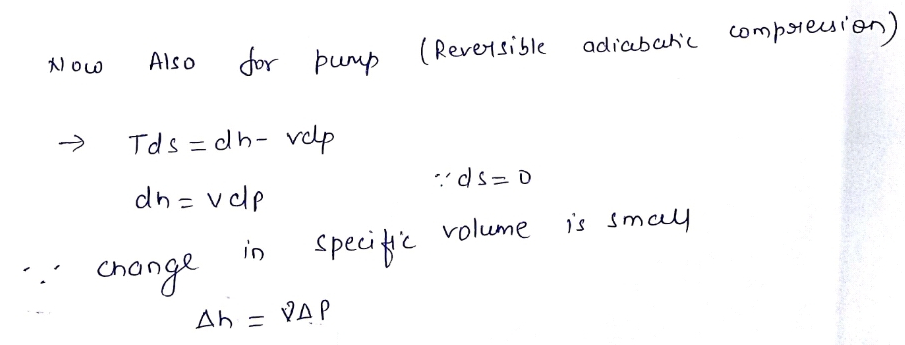 Now Also for pump (Reversible adiabatic compression)
→ Tds = dh - vdp
dh = vdp ∵ ds = 0
∵ change in specific volume is small
Δh = vΔP